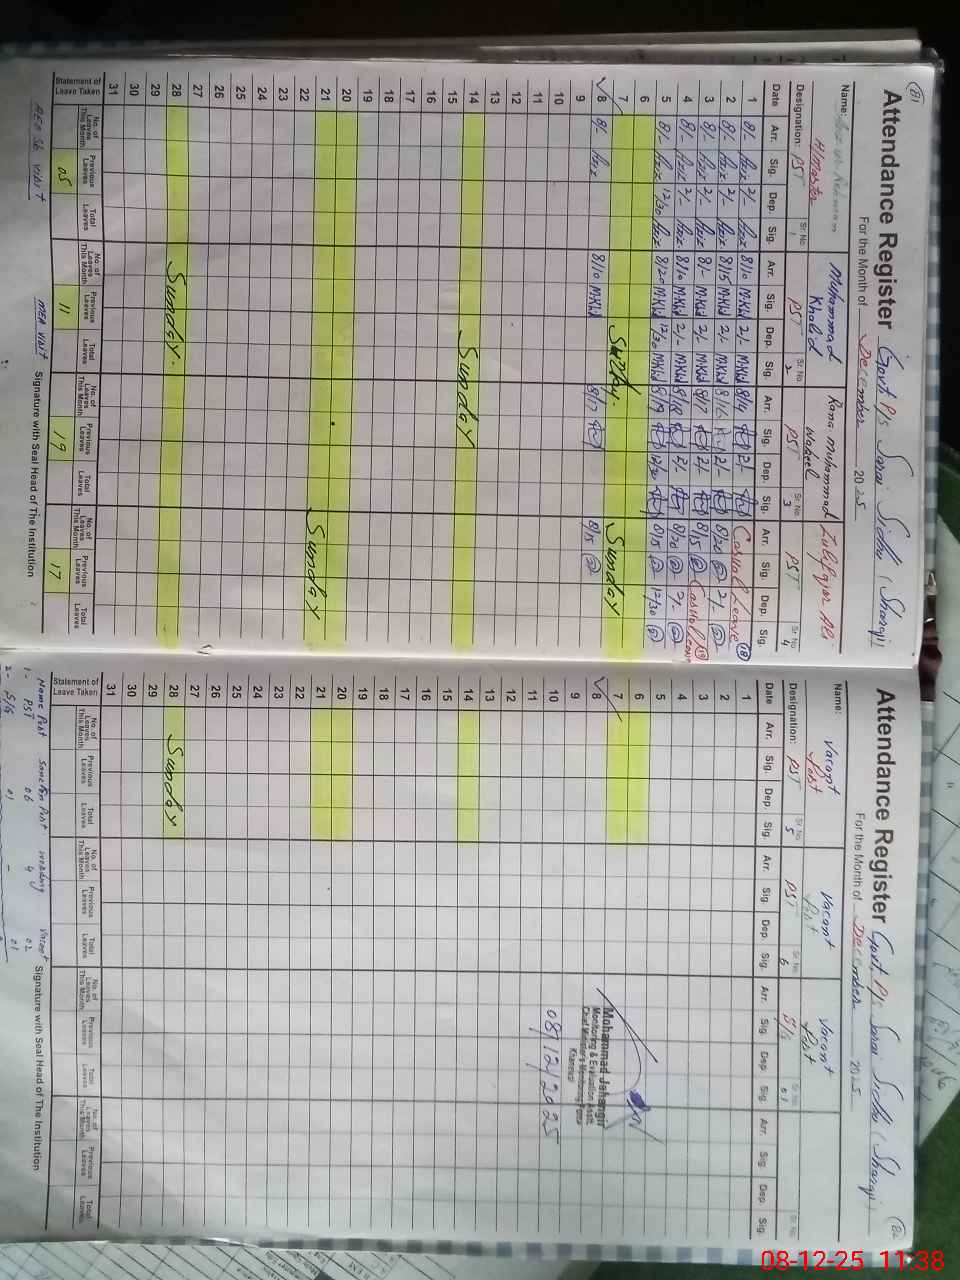 81
Attendance Register Govt P/S Sarai Sidhu (Sharqi)
For the Month of December 2025
Name: H/Master
Muhammad Khalid
Rana Muhammad Nabeel
Zulifqar Ali
Designation: PST Sr. No. 1
PST Sr. No. 2
PST Sr. No. 3
PST Sr. No. 4
Date Arr. Sig. Dep. Sig. Arr. Sig. Dep. Sig. Arr. Sig. Dep. Sig. Arr. Sig. Dep. Sig.
1 8/- 2/- 8/10 M.Kld 2/- M.Kld 8/19 2/- Casual Leave 18
2 8/- 2/- 8/15 M.Kld 2/- M.Kld 2/- 8/20 2/-
3 8/- 2/- 8/- M.Kld 2/- M.Kld 8/17 2/- 8/15 Casual Leave 19
4 8/- 2/- 8/10 M.Kld 2/- M.Kld 8/18 2/- 8/20 2/-
5 8/- 12/30 8/20 M.Kld 12/30 M.Kld 8/19 12/30 8/15 12/30
6
7 Sunday. Sunday
8 8/- 8/10 M.Kld 8/17 8/15
9
10
11
12
13
14 Sunday
15
16
17
18
19
20
21 Sunday
22
23
24
25
26
27
28 Sunday.
29
30
31
Statement of Leave Taken
No. of Leaves This Month Previous Leaves Total Leaves No. of Leaves This Month Previous Leaves Total Leaves No. of Leaves This Month Previous Leaves Total Leaves No. of Leaves This Month Previous Leaves Total Leaves
05 11 19 17
visit MEA visit Signature with Seal Head of The Institution
82
Attendance Register Govt P/S Sarai Sidhu (Sharqi)
For the Month of December 2025
Name: Vacant Post
Vacant Post
Vacant Post
Designation: PST Sr. No. 5
PST Sr. No. 6
S/G Sr. No. 01
Sr. No.
Date Arr. Sig. Dep. Sig. Arr. Sig. Dep. Sig. Arr. Sig. Dep. Sig. Arr. Sig. Dep. Sig.
1
2
3
4
5
6
7
8
9
10
11
12
13
14
15
16
17
18
19
20
21
22
23
24
25
26
27
28 Sunday
29
30
31
Mohammad Jahangir
Monitoring & Evaluation Asstt.
Chief Minister's Monitoring Force
Khanewal
08/12/2025
Statement of Leave Taken
No. of Leaves This Month Previous Leaves Total Leaves No. of Leaves This Month Previous Leaves Total Leaves No. of Leaves This Month Previous Leaves Total Leaves No. of Leaves This Month Previous Leaves Total Leaves
Name Post Sanction Post Working Vacant
Signature with Seal Head of The Institution
1- PST 06 4 02
2- S/G 01 - 01
08-12-25 11:38